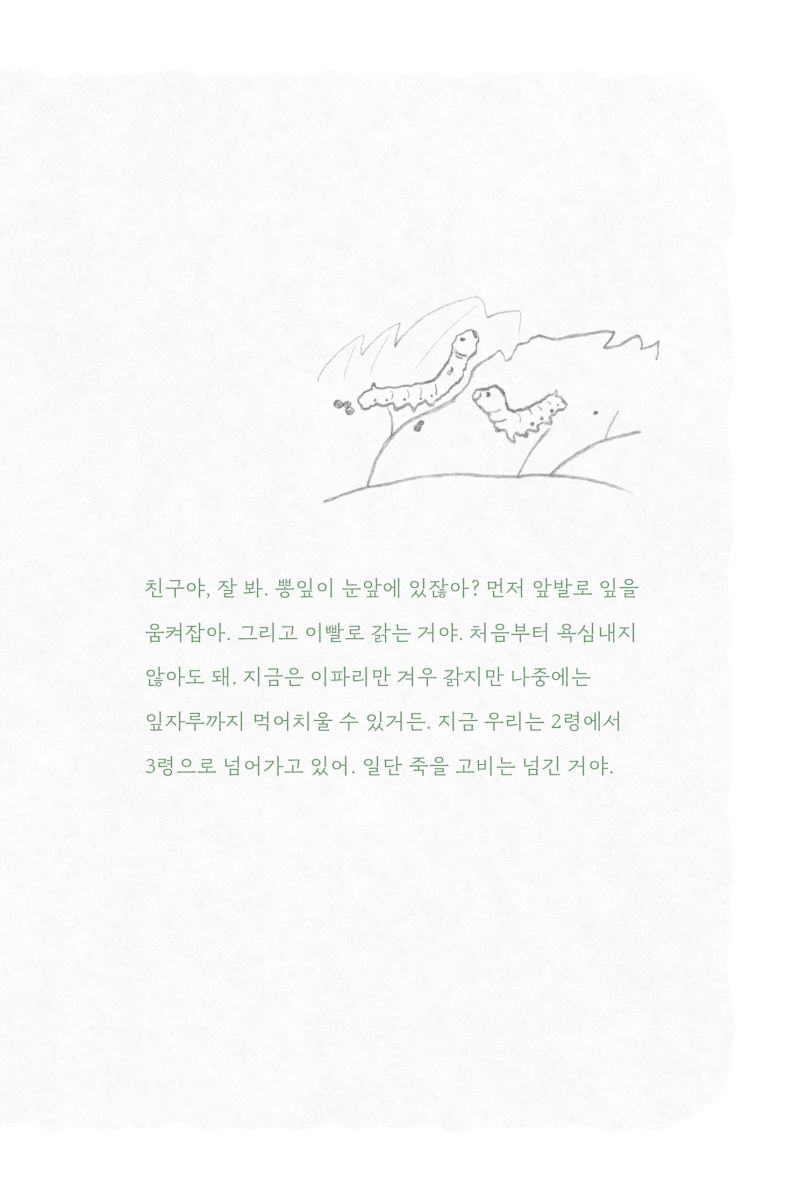 친구야, 잘 봐. 뽕잎이 눈앞에 있잖아? 먼저 앞발로 잎을
움켜잡아. 그리고 이빨로 갉는 거야. 처음부터 욕심내지
않아도 돼. 지금은 이파리만 겨우 갉지만 나중에는
잎자루까지 먹어치울 수 있거든. 지금 우리는 2령에서
3령으로 넘어가고 있어. 일단 죽을 고비는 넘긴 거야.